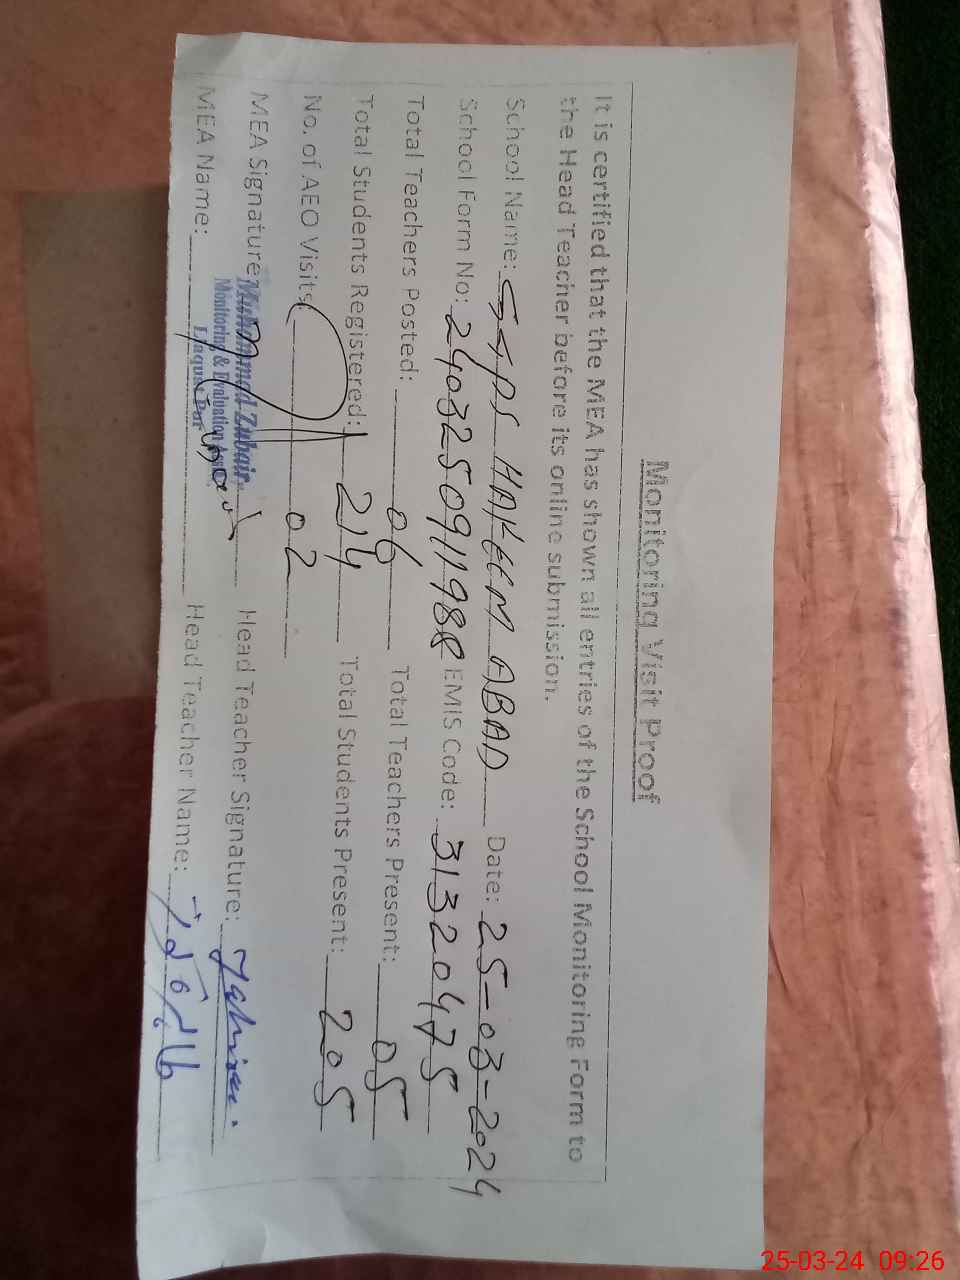 Monitoring Visit Proof
It is certified that the MEA has shown all entries of the School Monitoring Form to
the Head Teacher before its online submission.
School Name: GGPS HAKEEM ABAD Date: 25-03-2024
School Form No: 2403250911988 EMIS Code: 31320475
Total Teachers Posted: 06 Total Teachers Present: 05
Total Students Registered: 214 Total Students Present: 205
No. of AEO Visits: 02
MEA Signature: Muhammad Zubair Head Teacher Signature:
Monitoring & Evaluation
Liaquat Pur
MEA Name: Head Teacher Name:
25-03-24 09:26